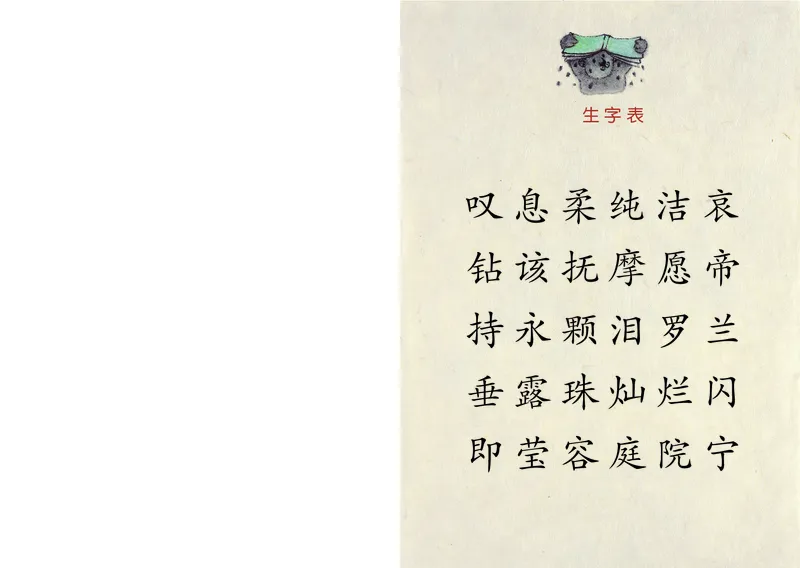 生字表
叹息柔纯洁哀
钻该抚摩愿帝
持永颗泪罗兰
垂露珠灿烂闪
即莹容庭院宁